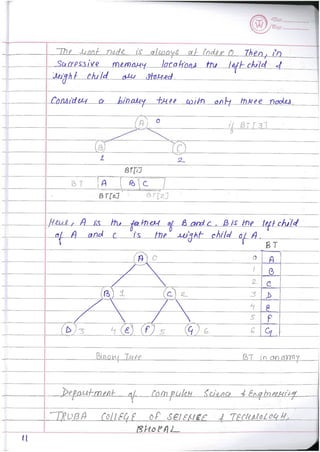 The root node is always at index 0. Then, in
Successive memory locations the left child &
right child are stored
Consider a binary tree with only three nodes.
A 0
if BT[3]
B C
1 2
BT[1]
BT A B C
BT[0] BT[2]
Here, A is the father of B and C. B is the left child
of A and C is the right child of A.
BT
A 0
0 A
1 B
B 1 C 2
2 C
3 D
4 E
D 3 4 E F 5 G 6
5 F
6 G
Binary Tree BT in an array
Department of Computer Science & Engineering
TRUBA COllEGE OF SCIENCE & TECHNOLOGY,
BHOPAL
11